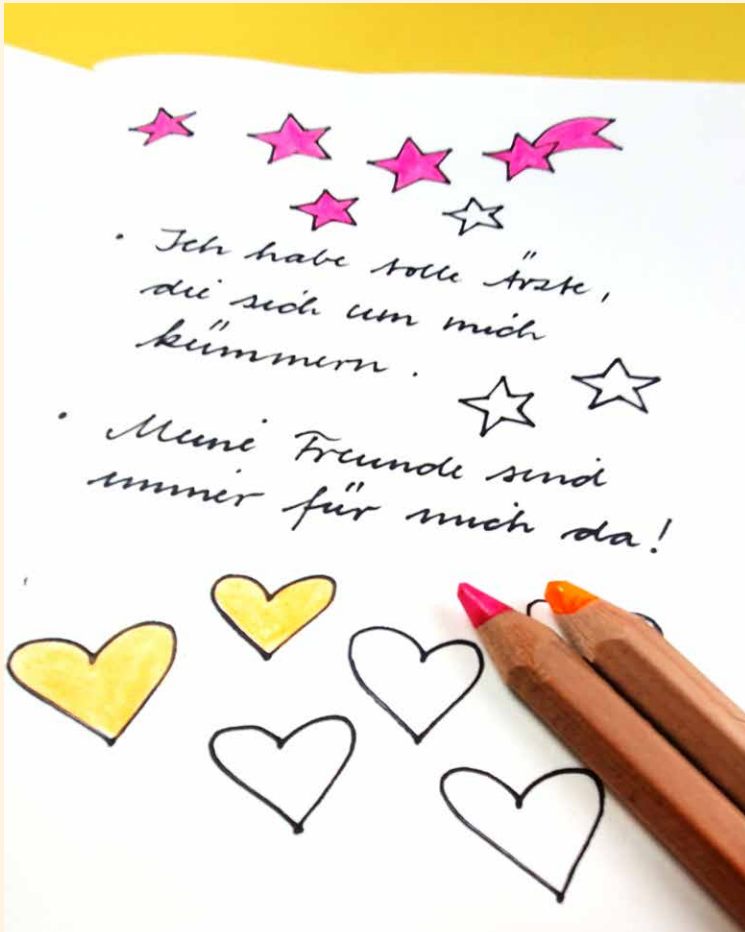 • Ich habe tolle Ärzte,
die sich um mich
kümmern.
• Meine Freunde sind
immer für mich da!